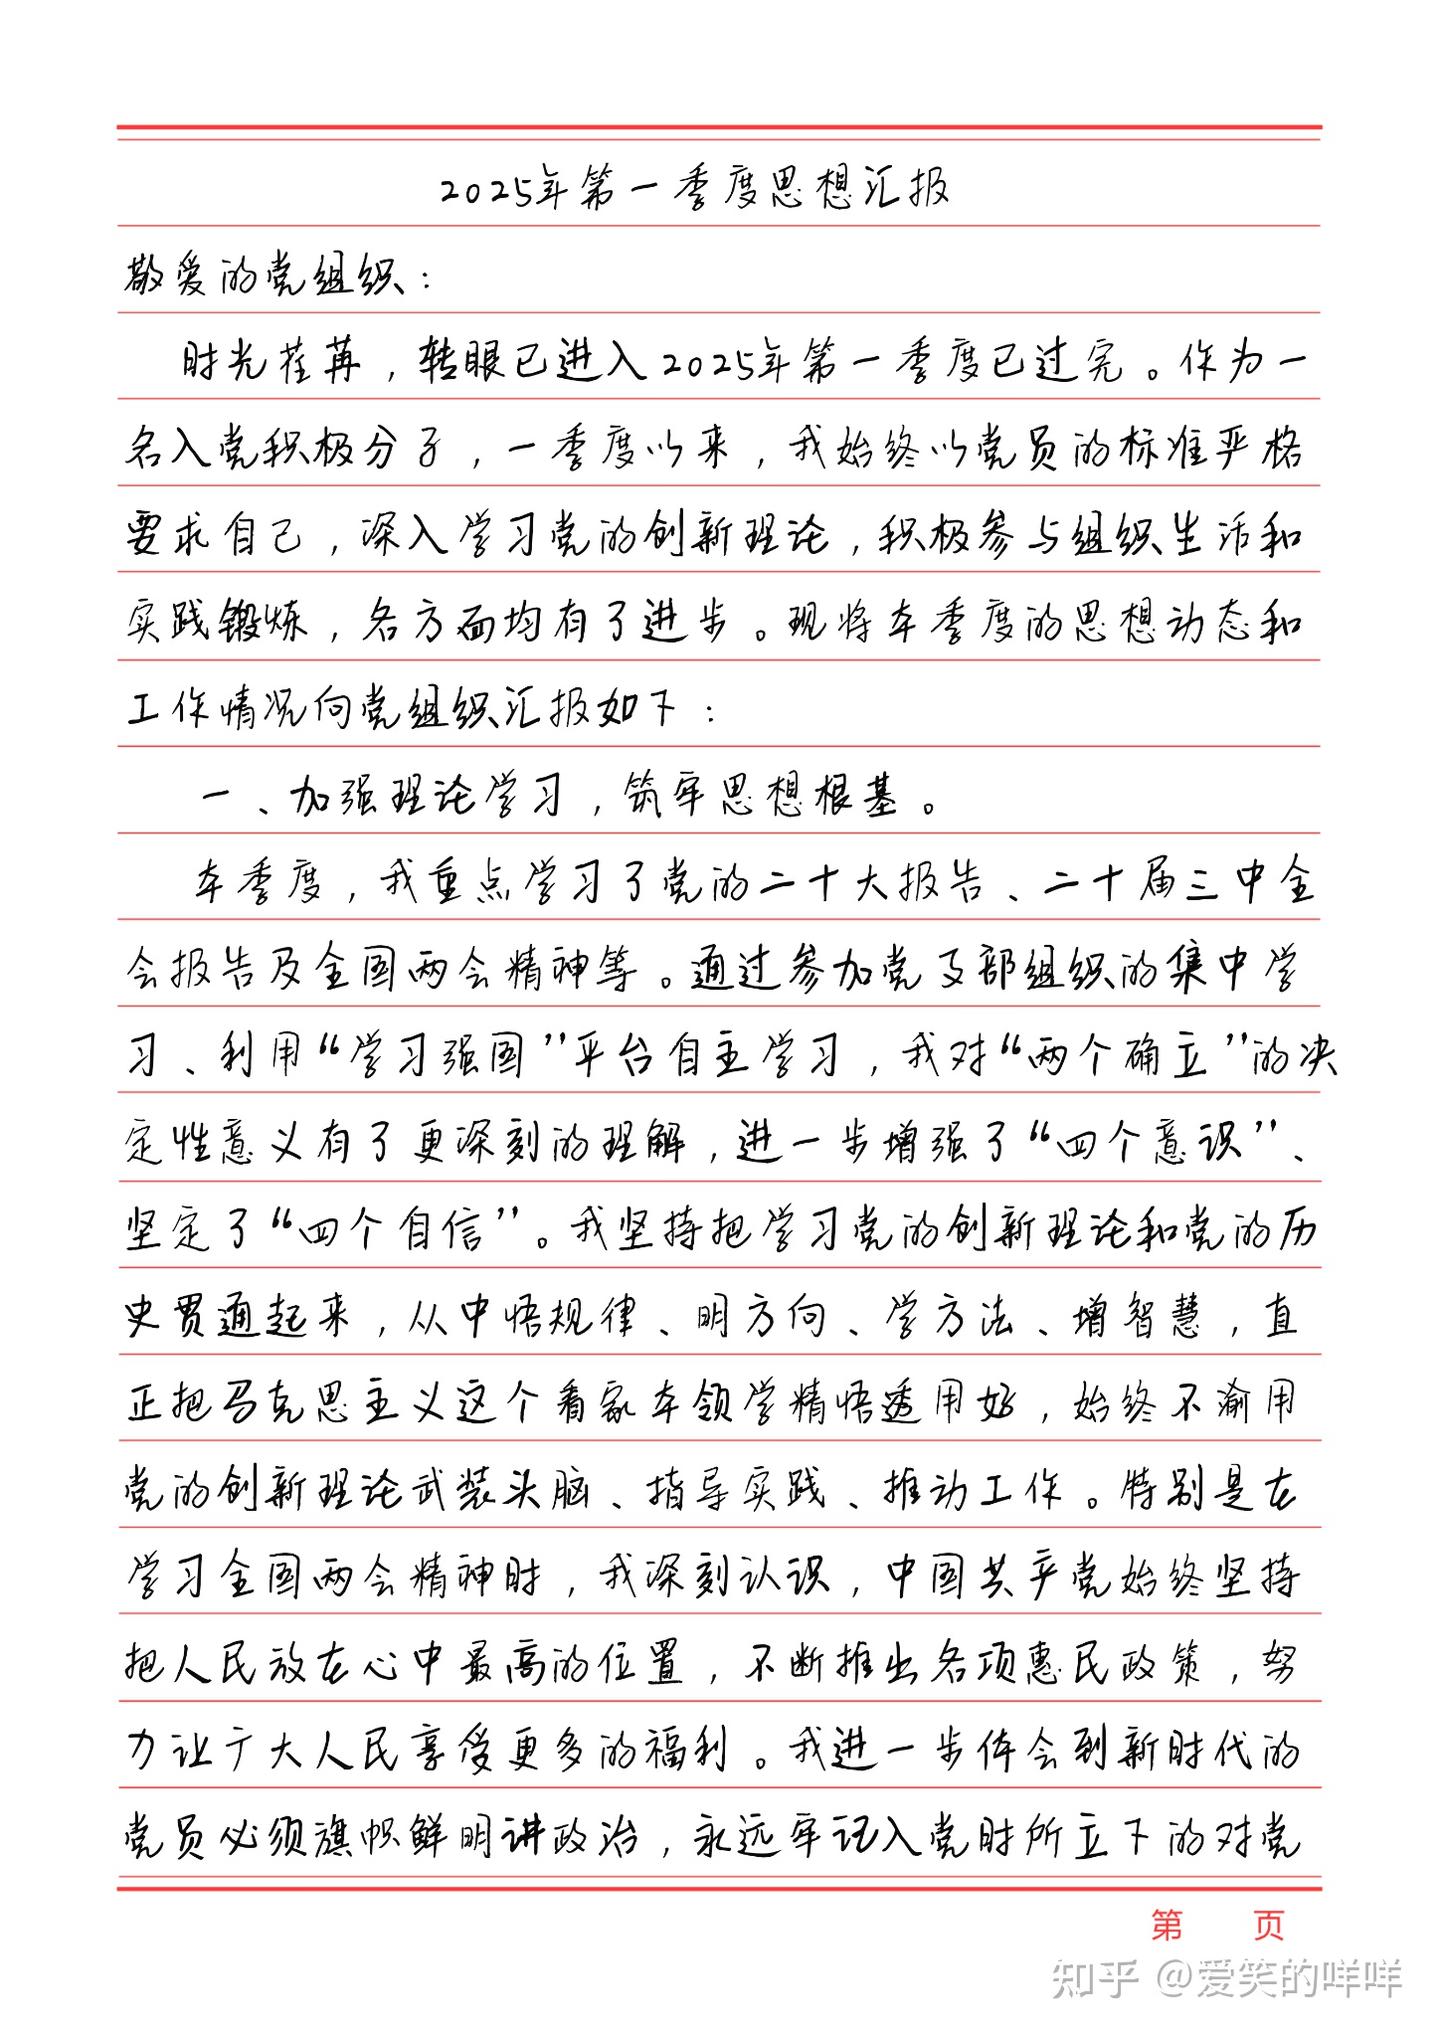 2025年第一季度思想汇报
敬爱的党组织：
时光荏苒，转眼已进入2025年第一季度已过完。作为一
名入党积极分子，一季度以来，我始终以党员的标准严格
要求自己，深入学习党的创新理论，积极参与组织生活和
实践锻炼，各方面均有了进步。现将本季度的思想动态和
工作情况向党组织汇报如下：
一、加强理论学习，筑牢思想根基。
本季度，我重点学习了党的二十大报告、二十届三中全
会报告及全国两会精神等。通过参加党支部组织的集中学
习、利用“学习强国”平台自主学习，我对“两个确立”的决
定性意义有了更深刻的理解，进一步增强了“四个意识”、
坚定了“四个自信”。我坚持把学习党的创新理论和党的历
史贯通起来，从中悟规律、明方向、学方法、增智慧，直
正把马克思主义这个看家本领学精悟透用好，始终不渝用
党的创新理论武装头脑、指导实践、推动工作。特别是在
学习全国两会精神时，我深刻认识，中国共产党始终坚持
把人民放在心中最高的位置，不断推出各项惠民政策，努
力让广大人民享受更多的福利。我进一步体会到新时代的
党员必须旗帜鲜明讲政治，永远牢记入党时所立下的对党
第 页
知乎 @爱笑的咩咩